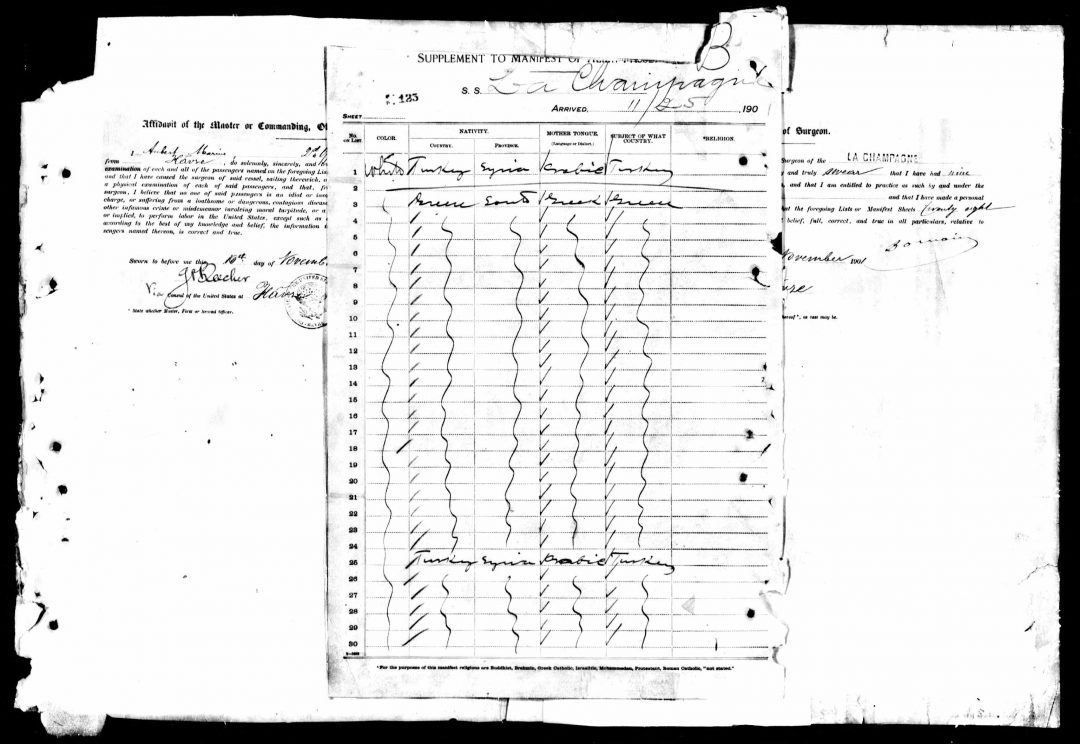 B
SUPPLEMENT TO MANIFEST OF
S. S. La Champagne
135
ARRIVED, 11/25, 190
SHEET
No. ON LIST. COLOR. NATIVITY. MOTHER TONGUE. SUBJECT OF WHAT COUNTRY. *RELIGION.
COUNTRY. PROVINCE. (Language or Dialect.)
1 White Turkey Syria Arabic Turkey
2
3 Greece South Greek Greece
4
5
6
7
8
9
10
11
12
13
14
15
16
17
18
19
20
21
22
23
24
25 Turkey Syria Arabic Turkey
26
27
28
29
30
*For the purposes of this manifest religions are Buddhist, Brahmin, Greek Catholic, Israelite, Mohammedan, Protestant, Roman Catholic, "not stated."
Affidavit of the Master or Commanding,
I
from Havre, do solemnly, sincerely, and
examination of each and all of the passengers named on the foregoing
and that I have caused the surgeon of said vessel, sailing therewith,
a physical examination of each of said passengers, and that,
surgeon, I believe that no one of said passengers is an idiot or
charge, or suffering from a loathsome or dangerous, contagious
other infamous crime or misdemeanor involving moral turpitude, or a
or implied, to perform labor in the United States, except such as
according to the best of my knowledge and belief, the information
sengers named thereon, is correct and true.
Sworn to before me this 16th day of
Vice Consul of the United States at Havre
* State whether Master, First or Second Officer.
of Surgeon.
Surgeon of the LA CHAMPAGNE
and truly swear that I have had nine
and that I am entitled to practice as such by and under the
and that I have made a personal
the foregoing Lists or Manifest Sheets twenty eight
belief, full, correct, and true in all particulars, relative to
November 1901
as case may be.